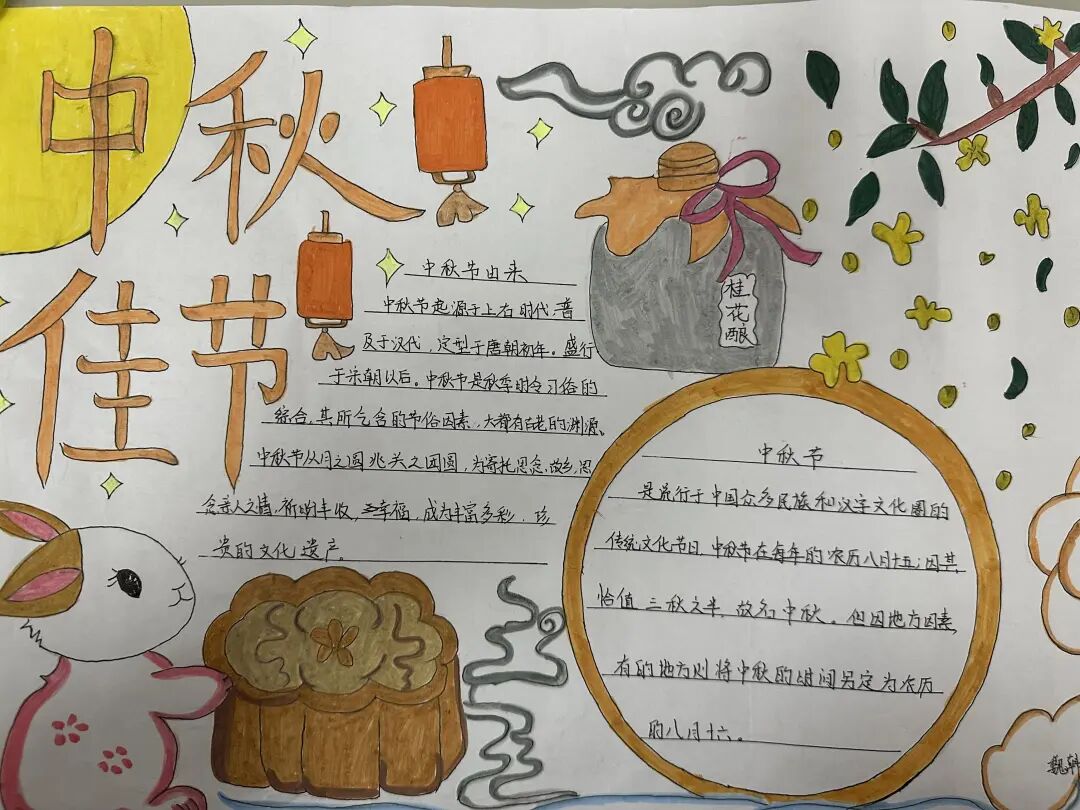 中秋
佳节
桂花酿
中秋节由来
中秋节起源于上古时代,普
及于汉代,定型于唐朝初年。盛行
于宋朝以后。中秋节是秋季时令习俗的
综合,其所包含的节俗因素,大都有古老的渊源。
中秋节以月之圆兆人之团圆,为寄托思念故乡,思
念亲人之情,祈盼丰收,幸福,成为丰富多彩,珍
贵的文化遗产。
中秋节
是流行于中国众多民族和汉字文化圈的
传统文化节日,中秋节在每年的农历八月十五;因其
恰值三秋之半,故名中秋。但因地方因素,
有的地方则将中秋的时间另定为农历
的八月十六。
魏